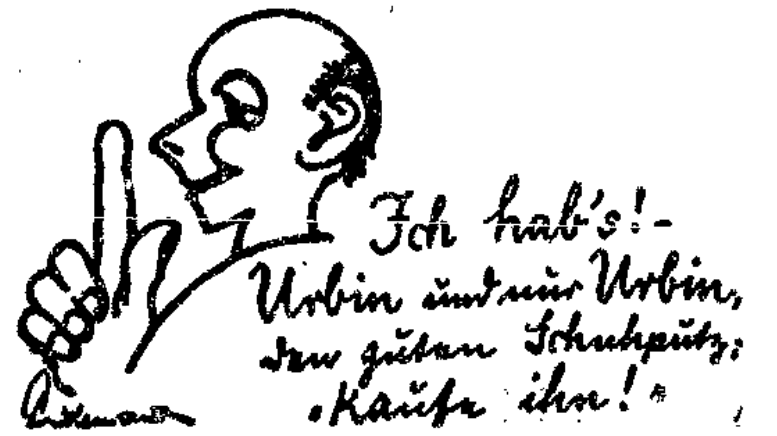 Ich hab's! -
Urbin und nur Urbin,
den guten Schuhputz;
"Kaufe ihn!"